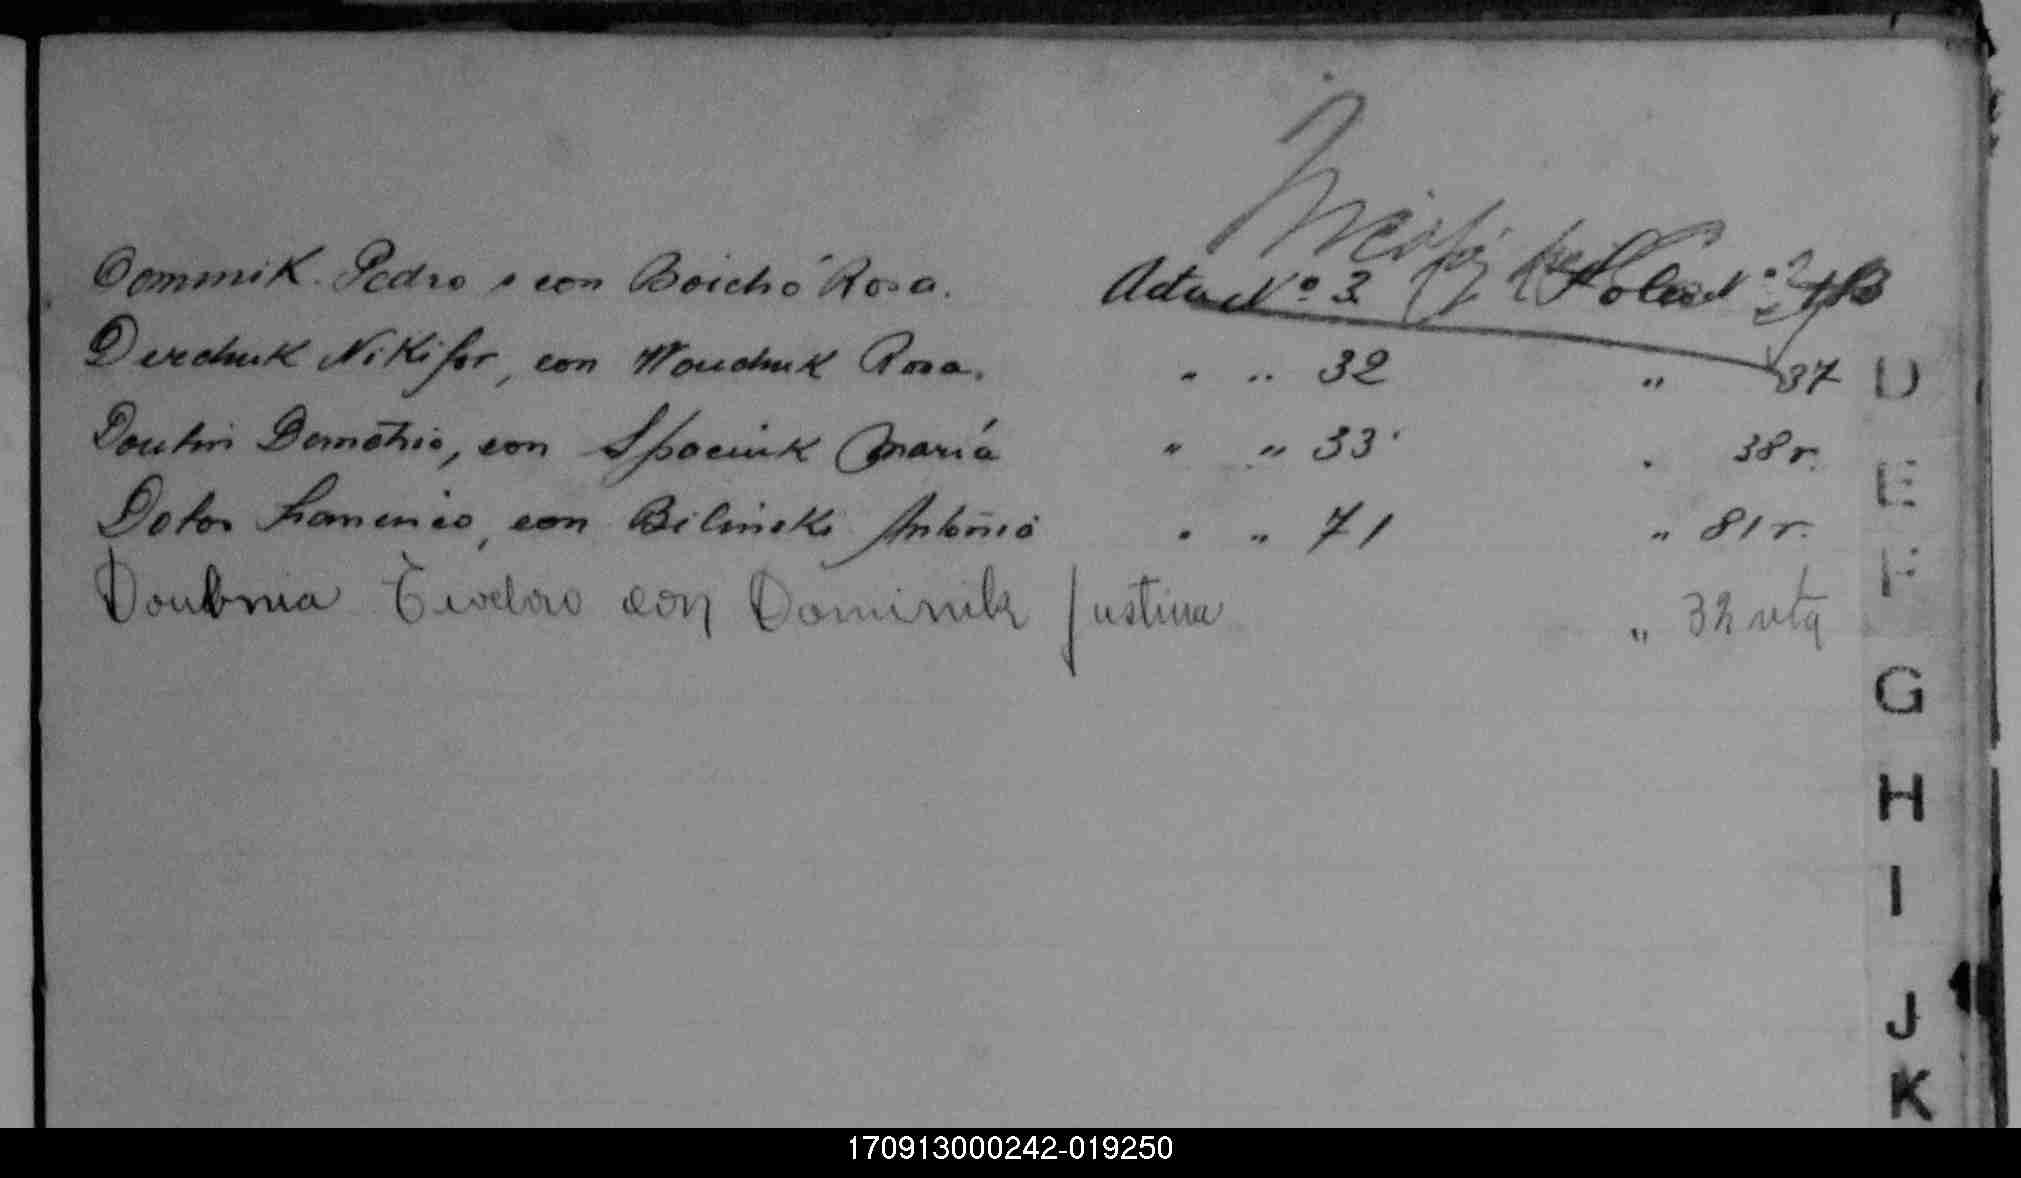 Dominik Pedro, con Boichó Rosa. Acta Nº 3 Folio Nº
Derchuk Nikifor, con Rosa. " " 32 " 37
Demétrio, con Spaciuk María " " 33 " 38 r.
Dotos con Bilinski " " 71 " 81 r.
Doubnia Teodoro con Dominik Justina " 32 vta
D
E
F
G
H
I
J
K
170913000242-019250